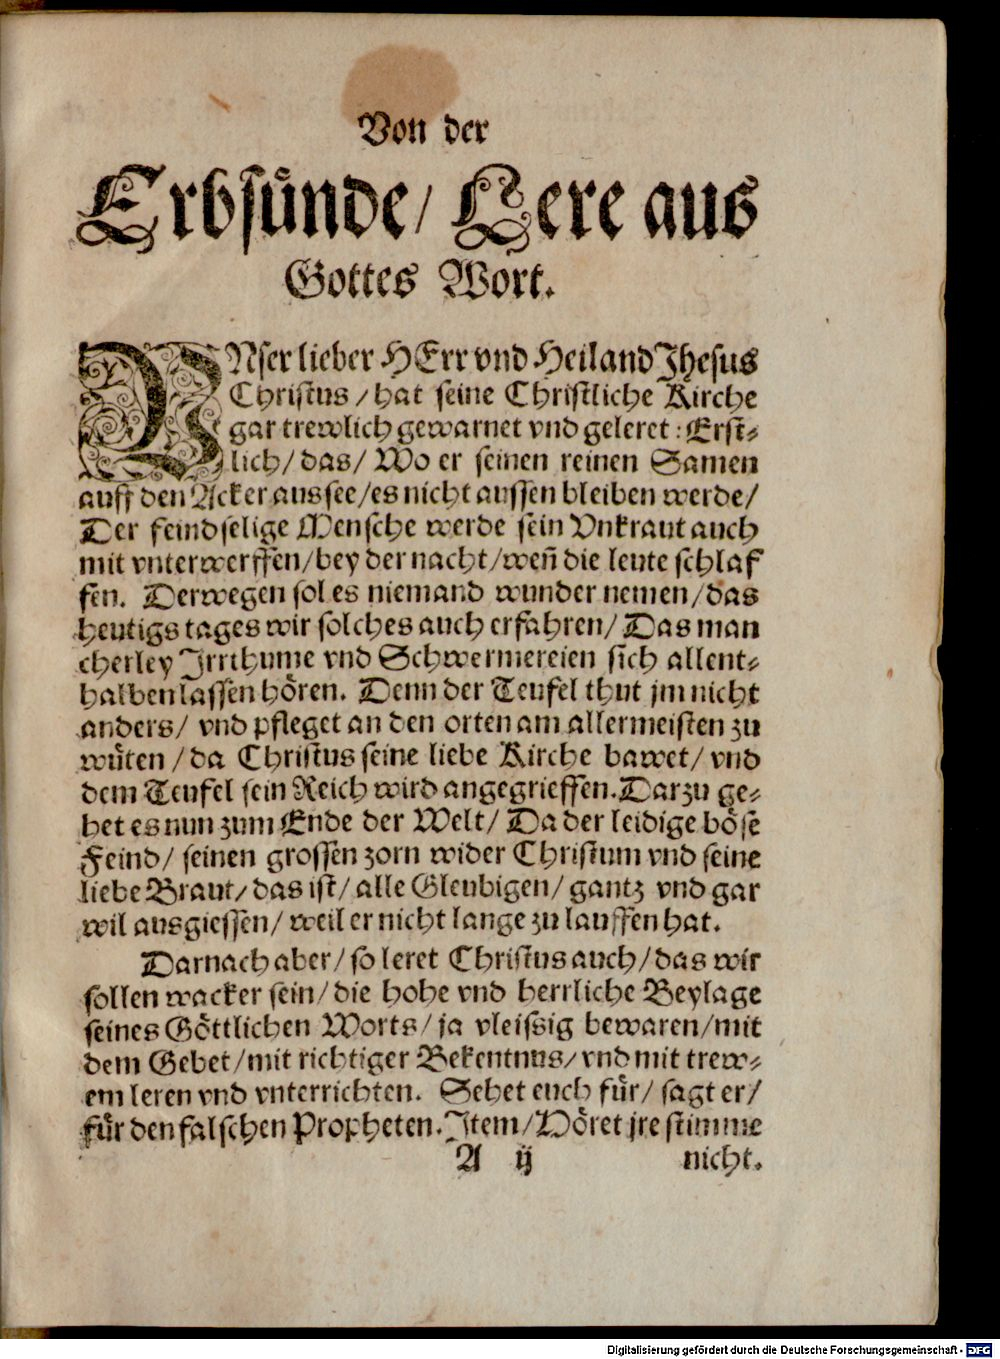 Von der
Erbsuͤnde/ Lere aus
Gottes Wort.
VNser lieber HErr vnd Heiland Jhesus
Christus/ hat seine Christliche Kirche
gar trewlich gewarnet vnd geleret: Erst⸗
lich/ das/ Wo er seinen reinen Samen
auff den Acker aussee/ es nicht aussen bleiben werde/
Der feindselige Mensche werde sein Vnkraut auch
mit vnterwerffen/ bey der nacht/ weñ die leute schlaf
fen. Derwegen sol es niemand wunder nemen/ das
heutigs tages wir solches auch erfahren/ Das man
cherley Irrthume vnd Schwermereien sich allent⸗
halben lassen hoͤren. Denn der Teufel thut jm nicht
anders/ vnd pfleget an den orten am allermeisten zu
wuͤten/ da Christus seine liebe Kirche bawet/ vnd
dem Teufel sein Reich wird angegrieffen. Darzu ge⸗
het es nun zum Ende der Welt/ Da der leidige boͤse
Feind/ seinen grossen zorn wider Christum vnd seine
liebe Braut/ das ist/ alle Gleubigen/ gantz vnd gar
wil ausgiessen/ weil er nicht lange zu lauffen hat.
Darnach aber/ so leret Christus auch/ das wir
sollen wacker sein/ die hohe vnd herrliche Beylage
seines Goͤttlichen Worts/ ja vleissig bewaren/ mit
dem Gebet/ mit richtiger Bekentnus/ vnd mit trew⸗
em leren vnd vnterrichten. Sehet euch fuͤr/ sagt er/
fuͤr den falschen Propheten. Item/ Hoͤret jre stimme
A ij nicht.
Digitalisierung gefördert durch die Deutsche Forschungsgemeinschaft - DFG